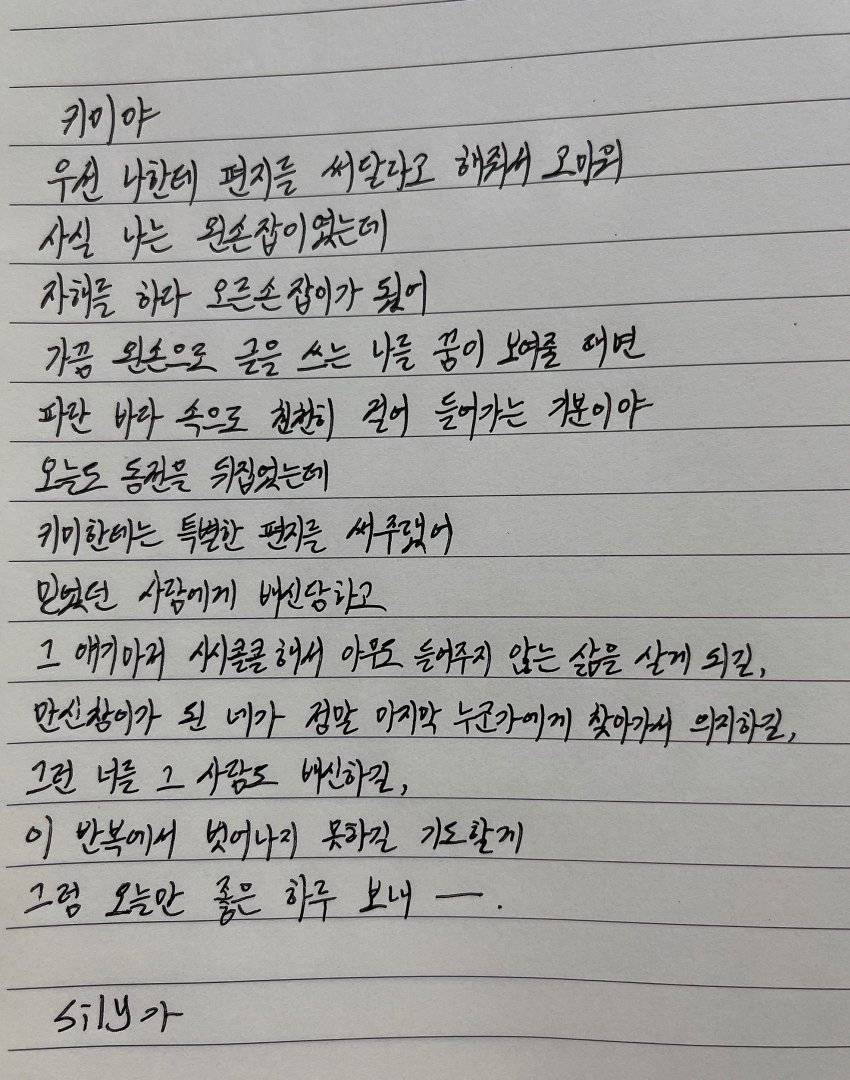 키미야
우선 나한테 편지를 써달라고 해줘서 고마워
사실 나는 왼손잡이였는데
자해를 하다 오른손잡이가 됐어
가끔 왼손으로 글을 쓰는 나를 꿈이 보여줄 때면
파란 바다 속으로 천천히 걸어 들어가는 기분이야
오늘도 동전을 뒤집었는데
키미한테는 특별한 편지를 써주랬어
믿었던 사람에게 배신당하고
그 얘기마저 시시콜콜해서 아무도 들어주지 않는 삶을 살게 되길,
만신창이가 된 네가 정말 마지막 누군가에게 찾아가서 의지하길,
그런 너를 그 사람도 배신하길,
이 반복에서 벗어나지 못하길 기도할게
그럼 오늘만 좋은 하루 보내 —.
sily가